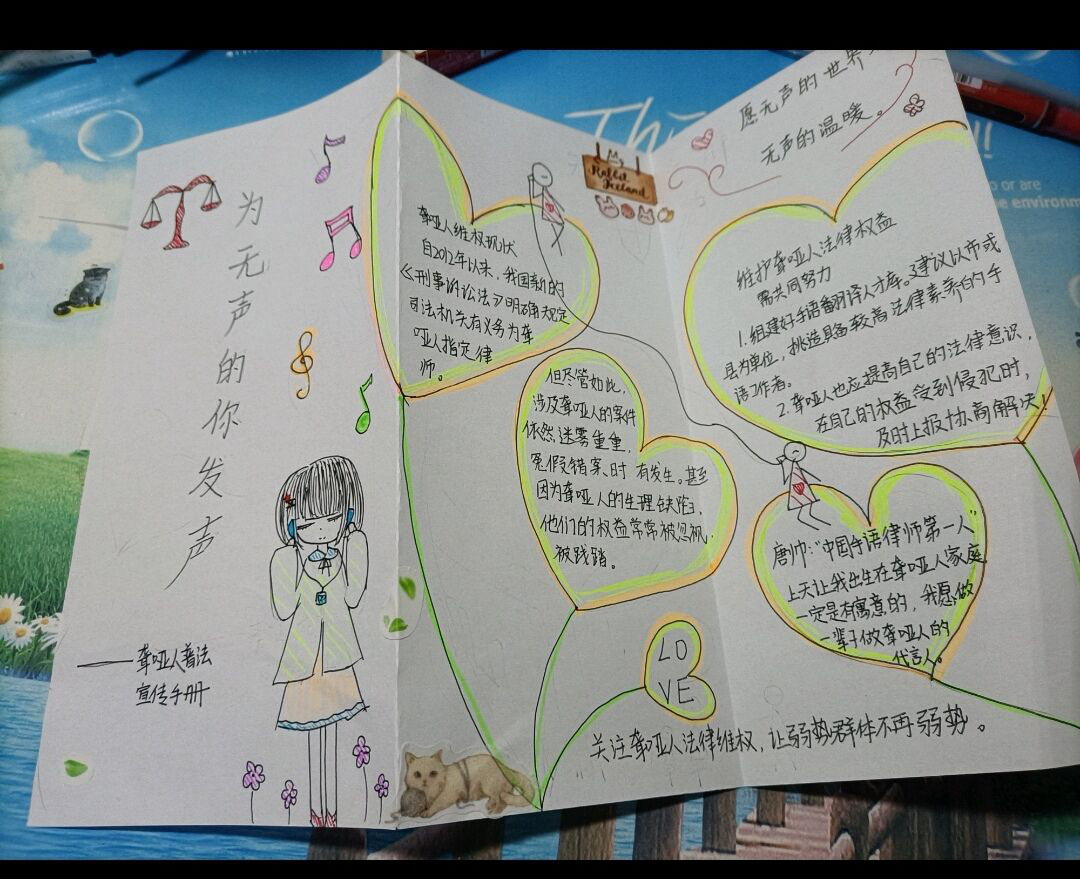 为无声的你发声
——聋哑人普法
宣传手册
聋哑人维权现状
自2012年以来，我国新的
《刑事诉讼法》明确规定
司法机关有义务为聋
哑人指定律
师。
My
Rabbit
Iceland
但尽管如此，
涉及聋哑人的案件
依然迷雾重重，
冤假错案时有发生。甚至
因为聋哑人的生理缺陷，
他们的权益常常被忽视，
被践踏。
LO
VE
愿无声的世界
无声的温暖。
维护聋哑人法律权益
需共同努力
1.组建好手语翻译人才库。建议以市或
县为单位，挑选具备较高法律素养的手
语工作者。
2.聋哑人也应提高自己的法律意识，
在自己的权益受到侵犯时，
及时上报协商解决！
唐帅："中国手语律师第一人"
上天让我出生在聋哑人家庭
一定是有寓意的，我愿做
一辈子做聋哑人的
代言人。
关注聋哑人法律维权，让弱势群体不再弱势。